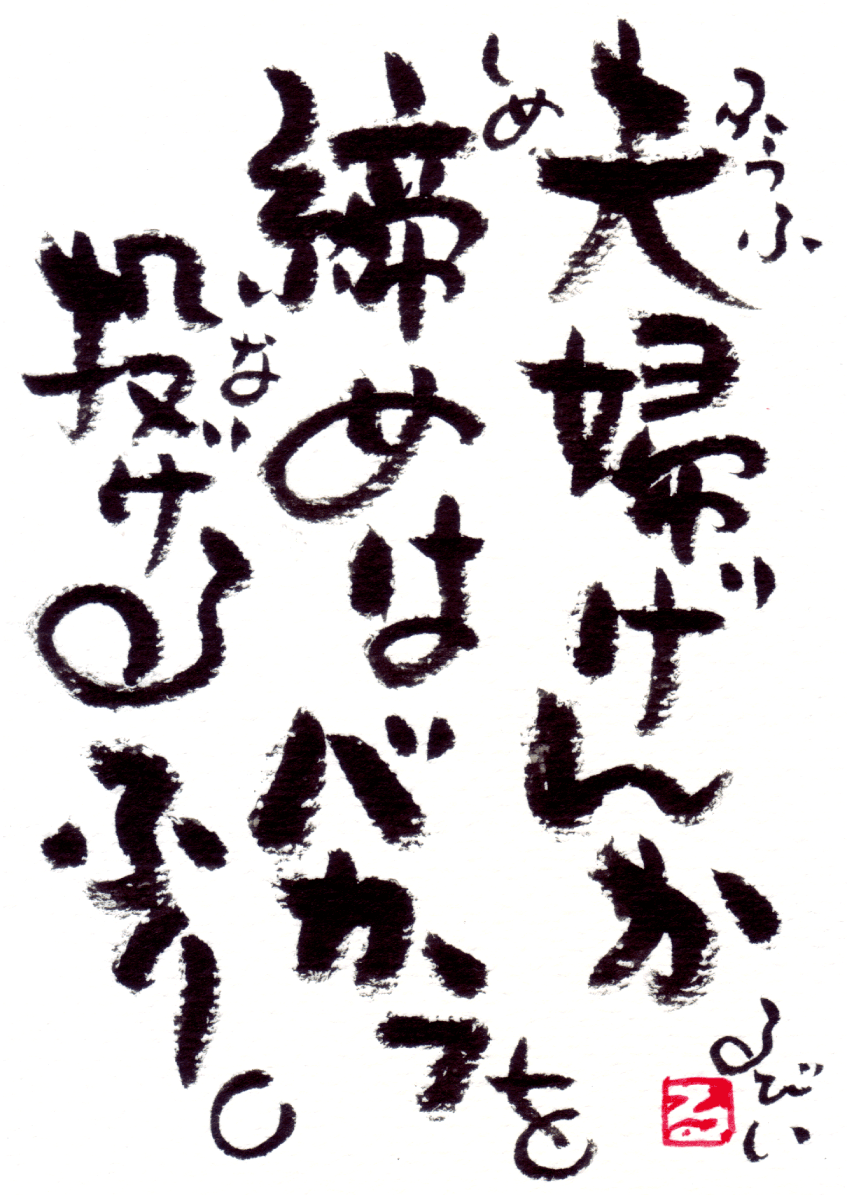 ふうふ
夫婦げんか
しめ
締めはバカラを
な
投げるふり。
るびい